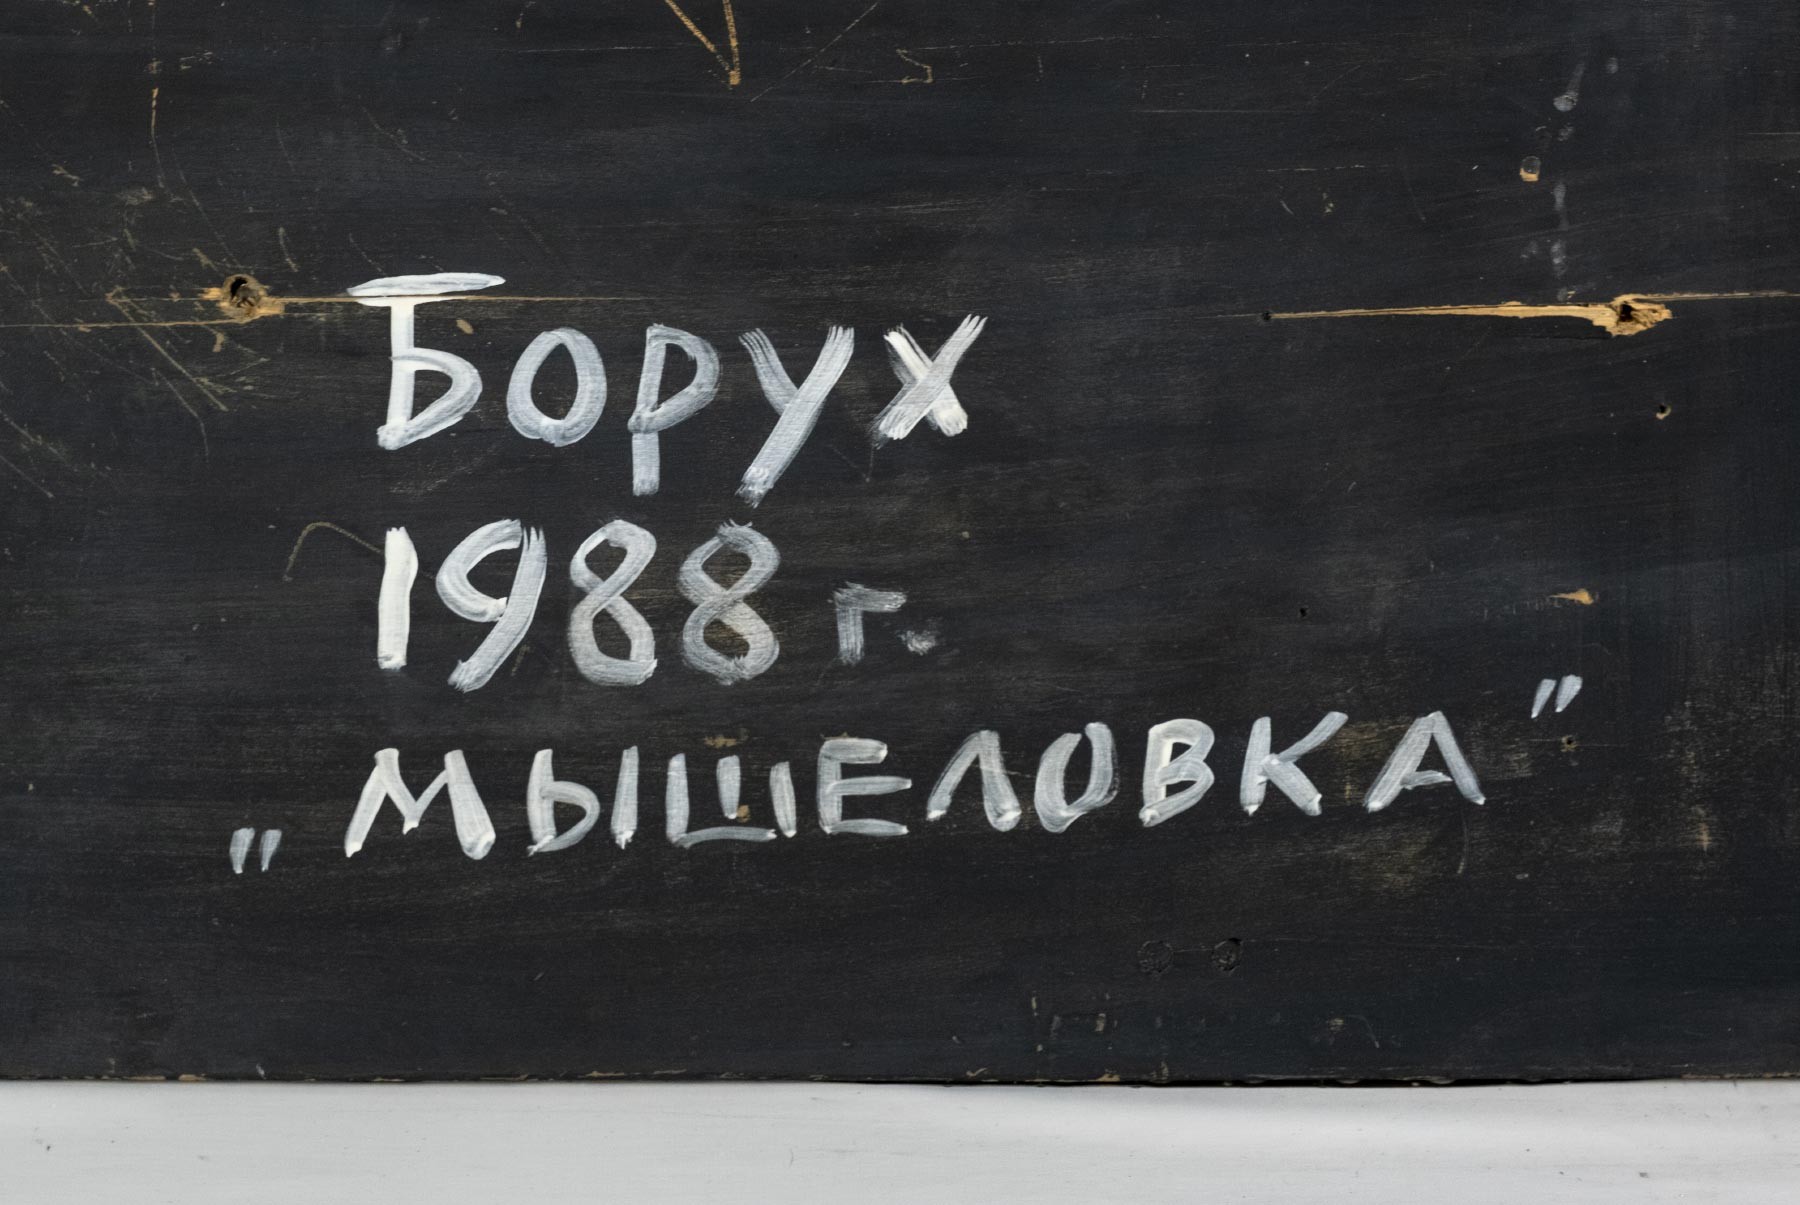 Борух
1988 г.
„МЫШЕЛОВКА”